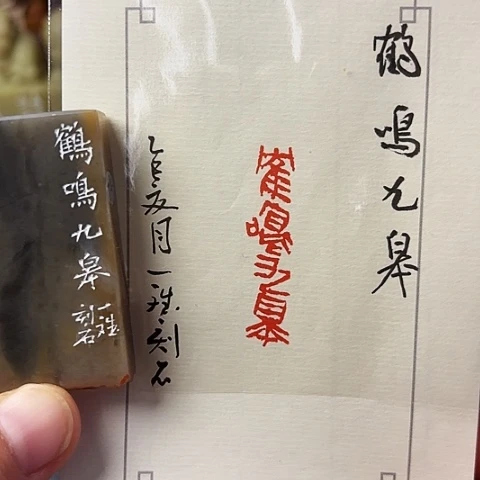 鶴鳴九皋
鶴鳴九皋
乙巳夏月一刻石
鶴鳴九皋
一刻石